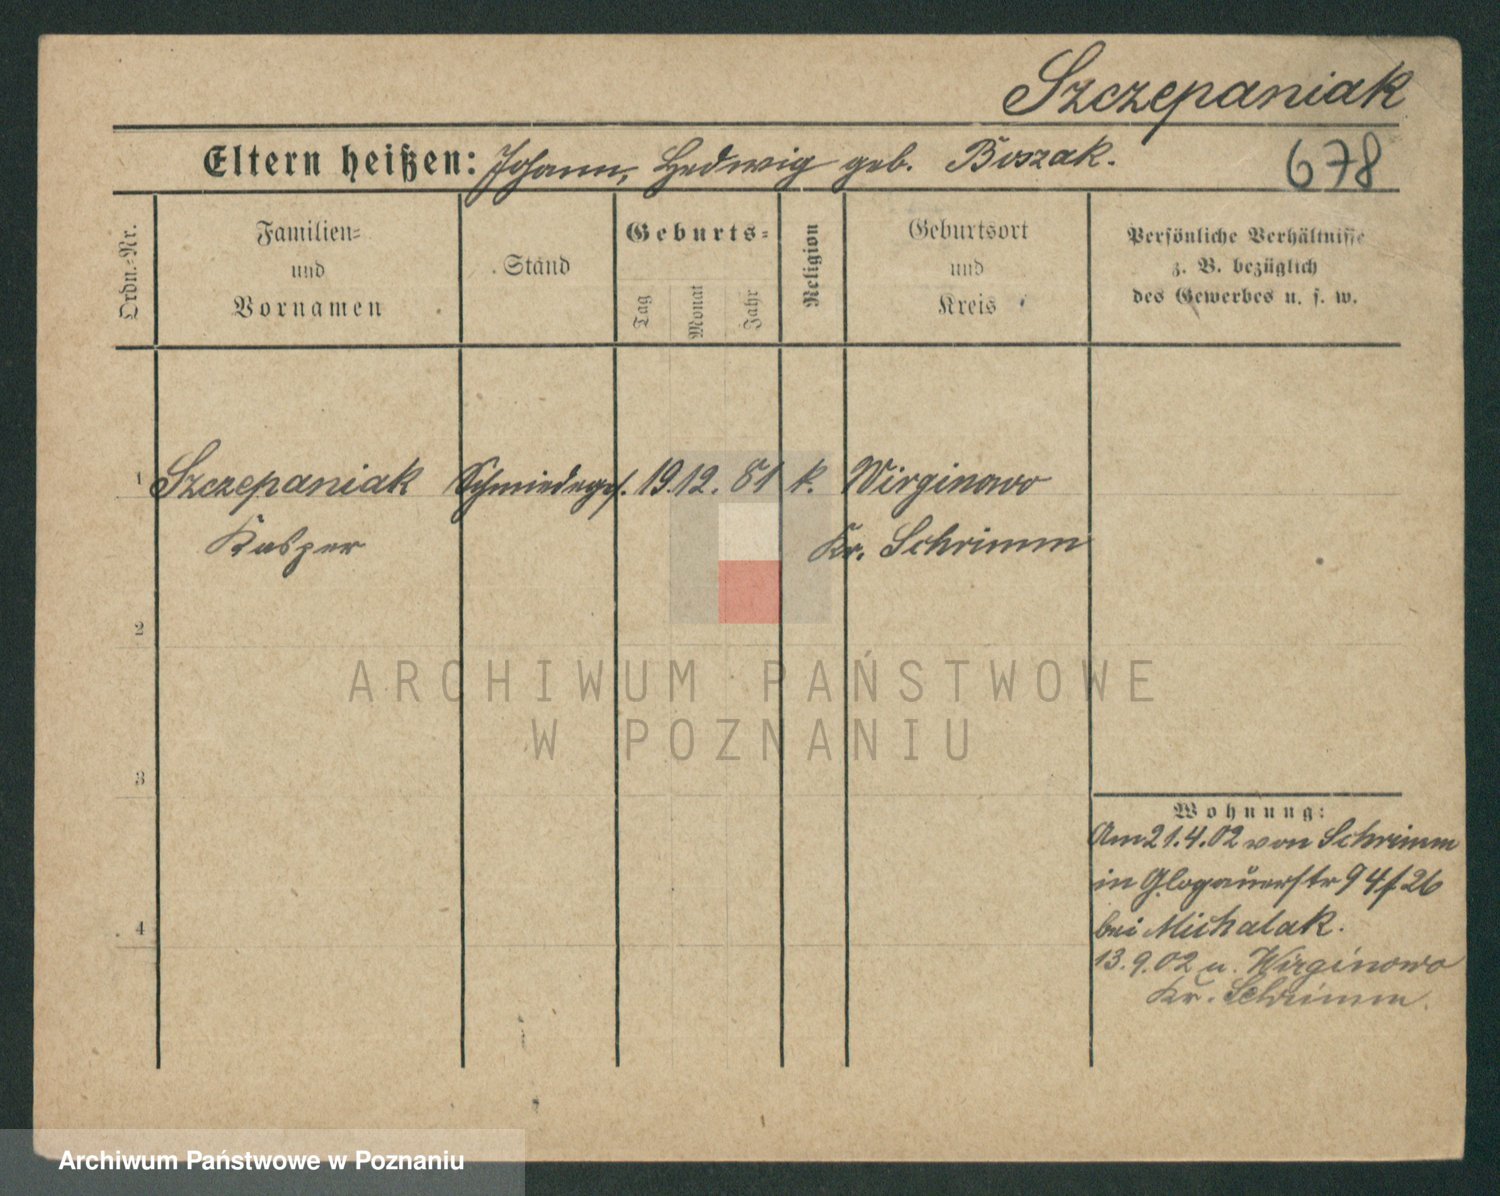 Szczepaniak
Eltern heißen: Johann, Hedwig geb. Boszak.
678
Ordn.-Nr.
Familien-
und
Vornamen
Stand
Geburts-
Tag
Monat
Jahr
Religion
Geburtsort
und
Kreis
Persönliche Verhältnisse
z. B. bezüglich
des Gewerbes u. s. w.
1 Szczepaniak Schmiedeges. 19. 12. 81 k. Wirginowo
Kasper Kr. Schrimm
2
3
4
Wohnung:
Am 21.4.02 von Schrimm
in Glogauerstr 94/26
bei Michalak.
13.9.02 n. Wirginowo
Kr. Schrimm.
ARCHIWUM PAŃSTWOWE
W POZNANIU
Archiwum Państwowe w Poznaniu